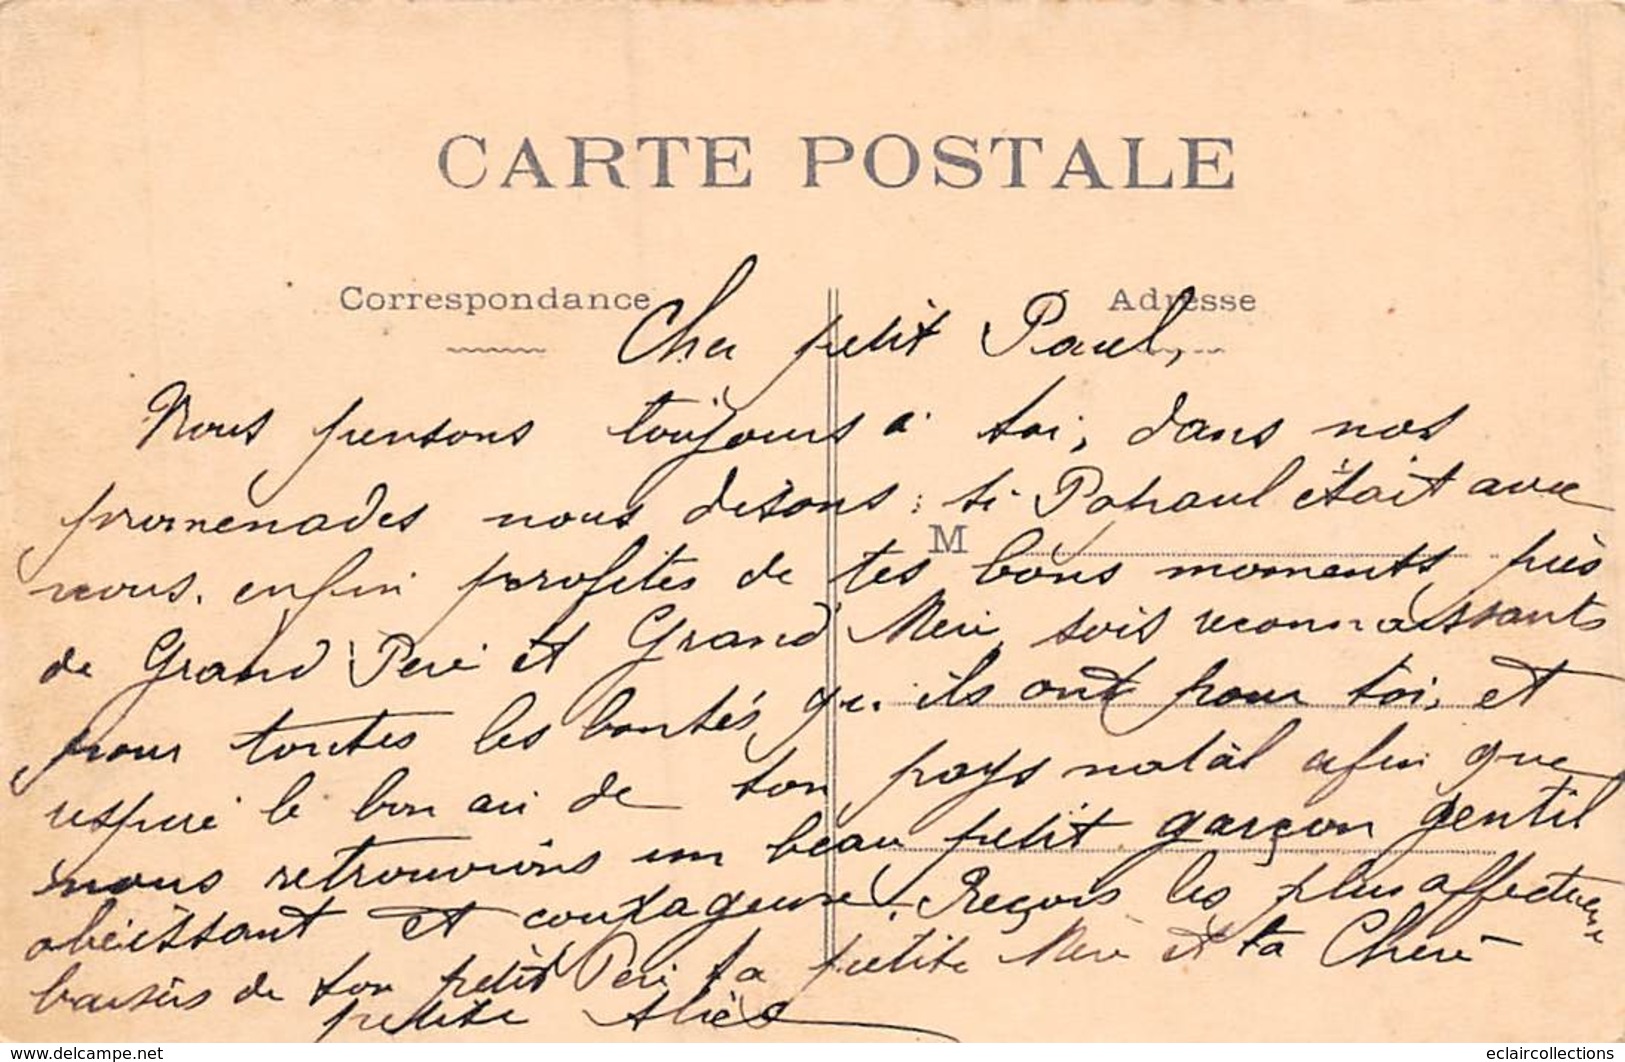 CARTE POSTALE
Correspondance
Adresse
Cher petit Paul,
Nous pensons toujours à toi, dans nos
promenades nous disons : si Popaul était avec
nous. enfin profites de tes bons moments près
M
de Grand Père et Grand Mère, sois reconnaissants
pour toutes les bontés qu'ils ont pour toi, et
respire le bon air de ton pays natal afin que
nous retrouvions un beau petit garçon gentil
obéissant et courageux. Reçois les plus affectueux
baisers de ton petit Père ta petite Mère et ta Chère
petite
www.delcampe.net
eclaircollections